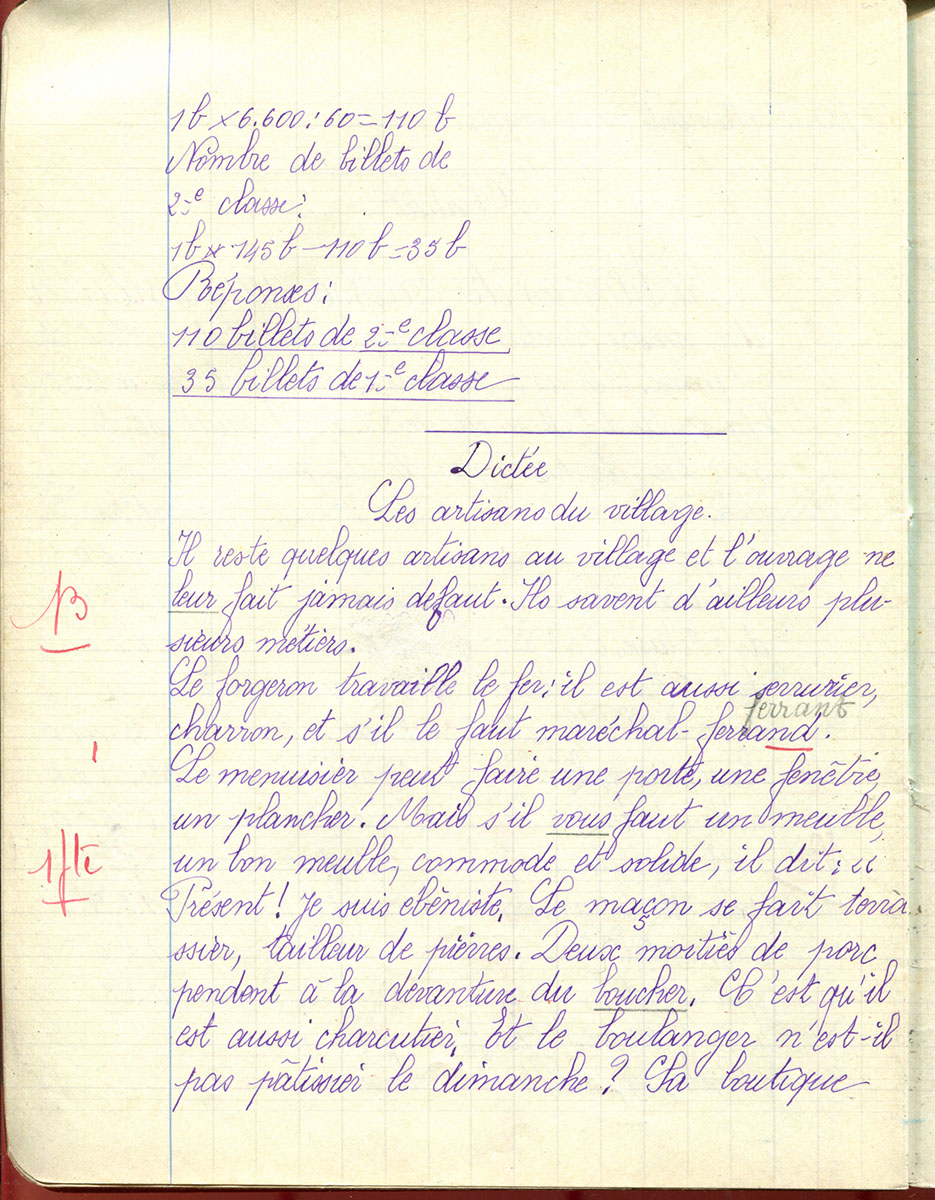 1b × 6.600 : 60 = 110 b
Nombre de billets de
2e classe :
1b × 145b - 110 b = 35 b
Réponses :
110 billets de 2e classe
35 billets de 1e classe
Dictée
Les artisans du village.
Il reste quelques artisans au village et l'ouvrage ne
leur fait jamais defaut. Ils savent d'ailleurs plu-
sieurs métiers.
B
Le forgeron travaille le fer : il est aussi serrurier,
ferrant
charron, et s'il le faut maréchal-ferrand.
Le menuisier peut faire une porte, une fenêtre,
un plancher. Mais s'il vous faut un meuble,
un bon meuble, commode et solide, il dit : "
1 fte
Présent ! Je suis ébéniste. Le maçon se fait terra
ssier, tailleur de pierres. Deux moitiés de porc
pendent à la devanture du boucher. C'est qu'il
est aussi charcutier. Et le boulanger n'est-il
pas pâtissier le dimanche ? Sa boutique